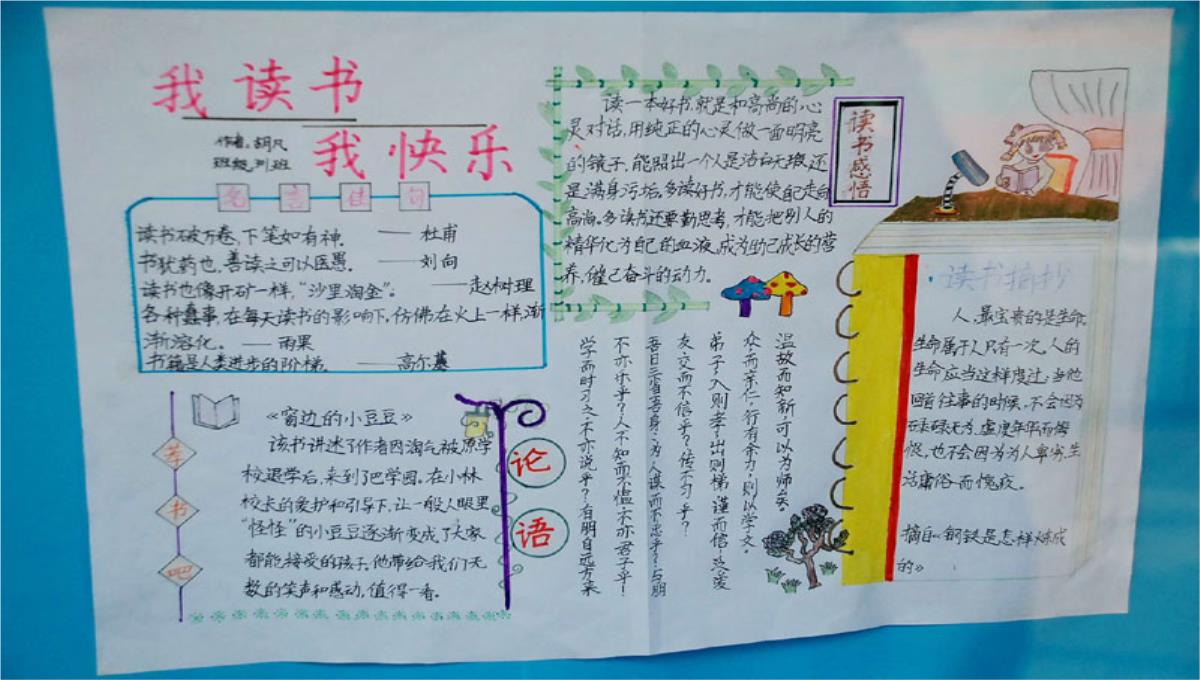 我读书
我快乐
作者：胡凡
班级：列班
名言佳句
读书破万卷，下笔如有神。——杜甫
书犹药也，善读之可以医愚。——刘向
读书也像开矿一样，“沙里淘金”。——赵树理
各种蠢事，在每天读书的影响下，仿佛在火上一样，渐
渐溶化。——雨果
书籍是人类进步的阶梯。——高尔基
荐书吧
《窗边的小豆豆》
该书讲述了作者因淘气被原学
校退学后，来到了巴学园。在小林
校长的爱护和引导下，让一般人眼里
“怪怪”的小豆豆逐渐变成了大家
都能接受的孩子，他带给我们无
数的笑声和感动，值得一看。
读书感悟
读一本好书，就是和高尚的心
灵对话，用纯正的心灵做一面明亮
的镜子，能照出一个人是洁白无瑕，还
是满身污垢。多读好书，才能使自己走向
高尚。多读书还要勤思考，才能把别人的
精华化为自己的血液，成为助己成长的营
养，催己奋斗的动力。
论语
学而时习之不亦说乎？有朋自远方来
不亦乐乎？人不知而不愠不亦君子乎！
吾日三省吾身：为人谋而不忠乎？与朋
友交而不信乎？传不习乎？
弟子，入则孝，出则悌，谨而信，泛爱
众，而亲仁，行有余力，则以学文。
温故而知新，可以为师矣。
读书摘抄
人，最宝贵的是生命。
生命属于人只有一次。人的
生命应当这样度过：当他
回首往事的时候，不会因为
碌碌无为、虚度年华而悔
恨，也不会因为为人卑劣、生
活庸俗而愧疚。
摘自《钢铁是怎样炼成
的》